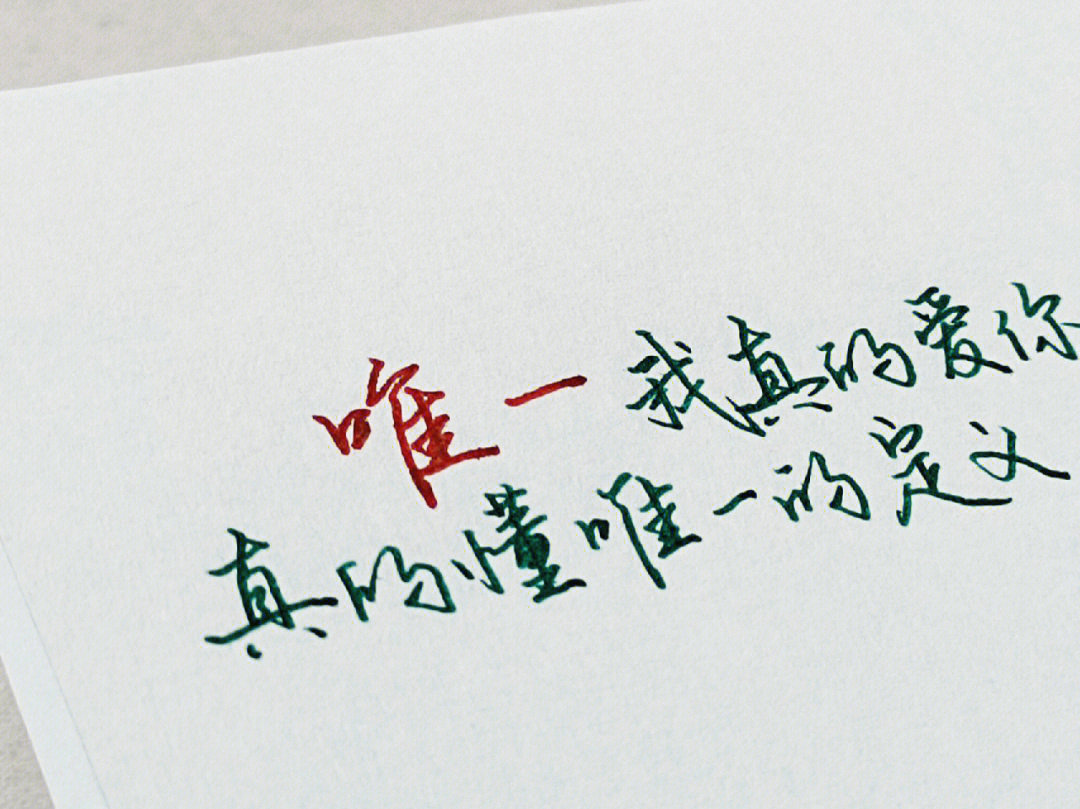 唯一我真的爱你
真的懂唯一的定义